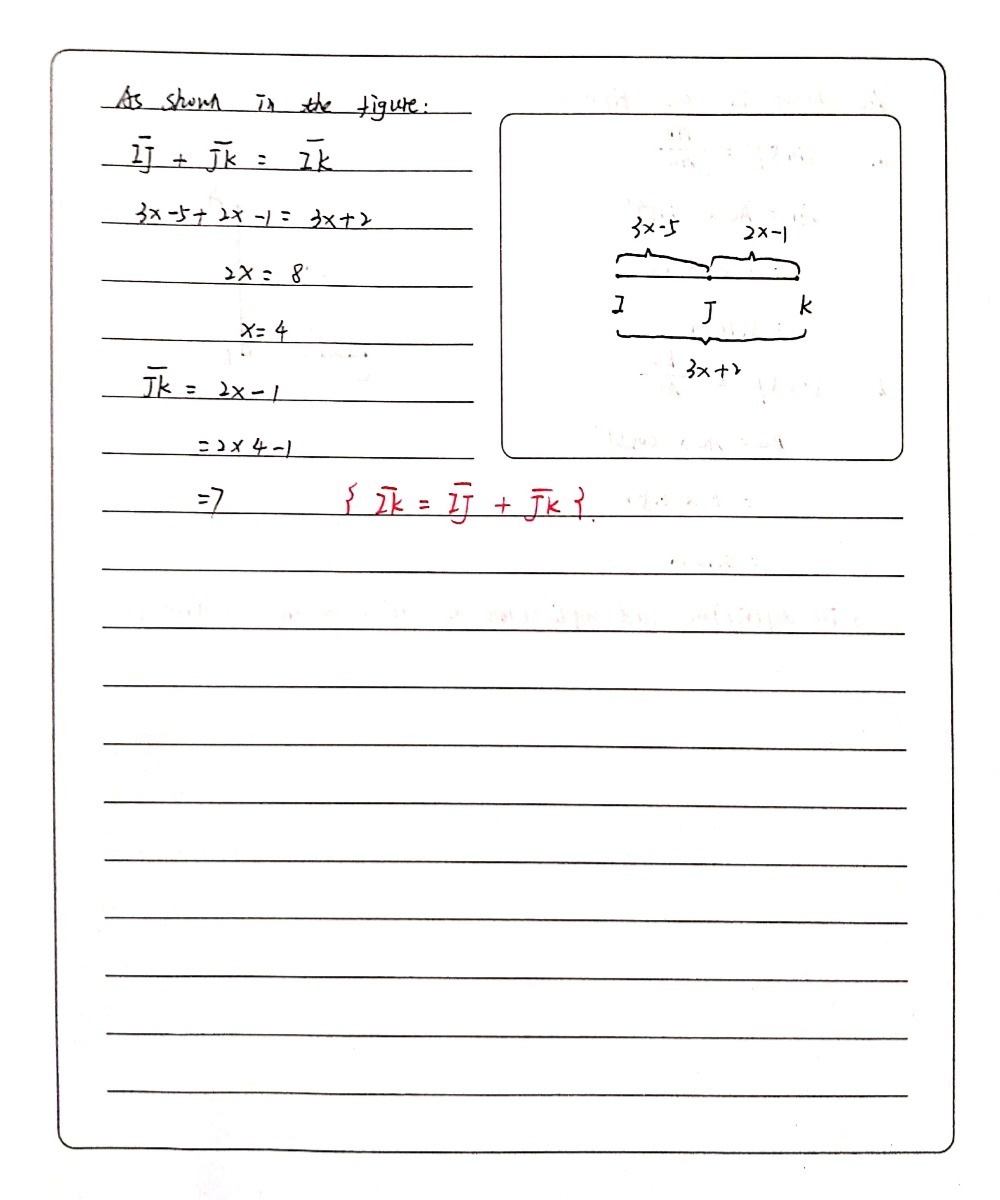 As shown in the figure:
I̅J̅ + J̅K̅ = I̅K̅
3x-5+2x-1=3x+2
2x=8
x=4
J̅K̅ = 2x-1
=2×4-1
=7 { I̅K̅ = I̅J̅ + J̅K̅ }.
3x-5 2x-1
I J K
3x+2